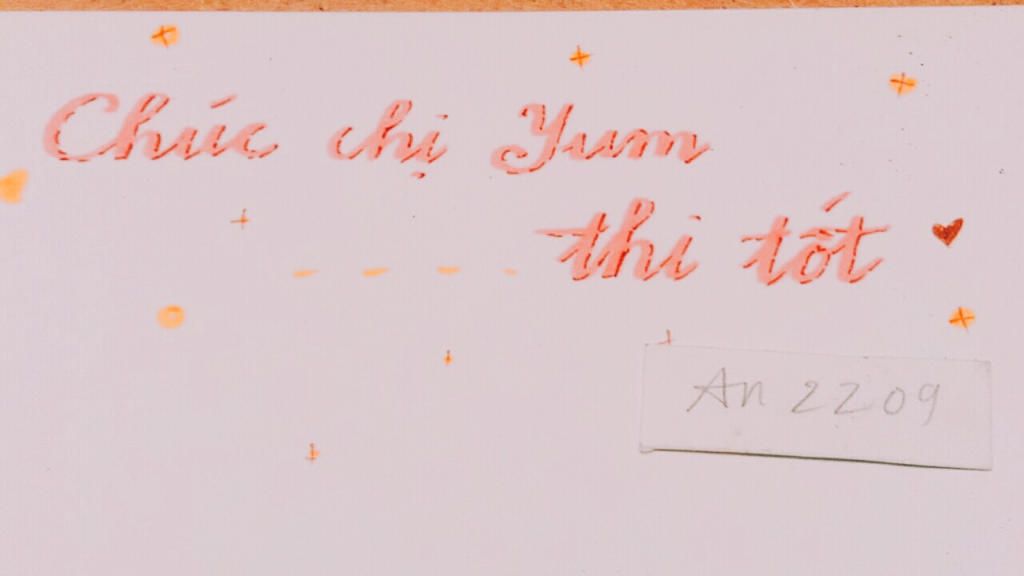 Chúc chị Yum
thi tốt
An 2209